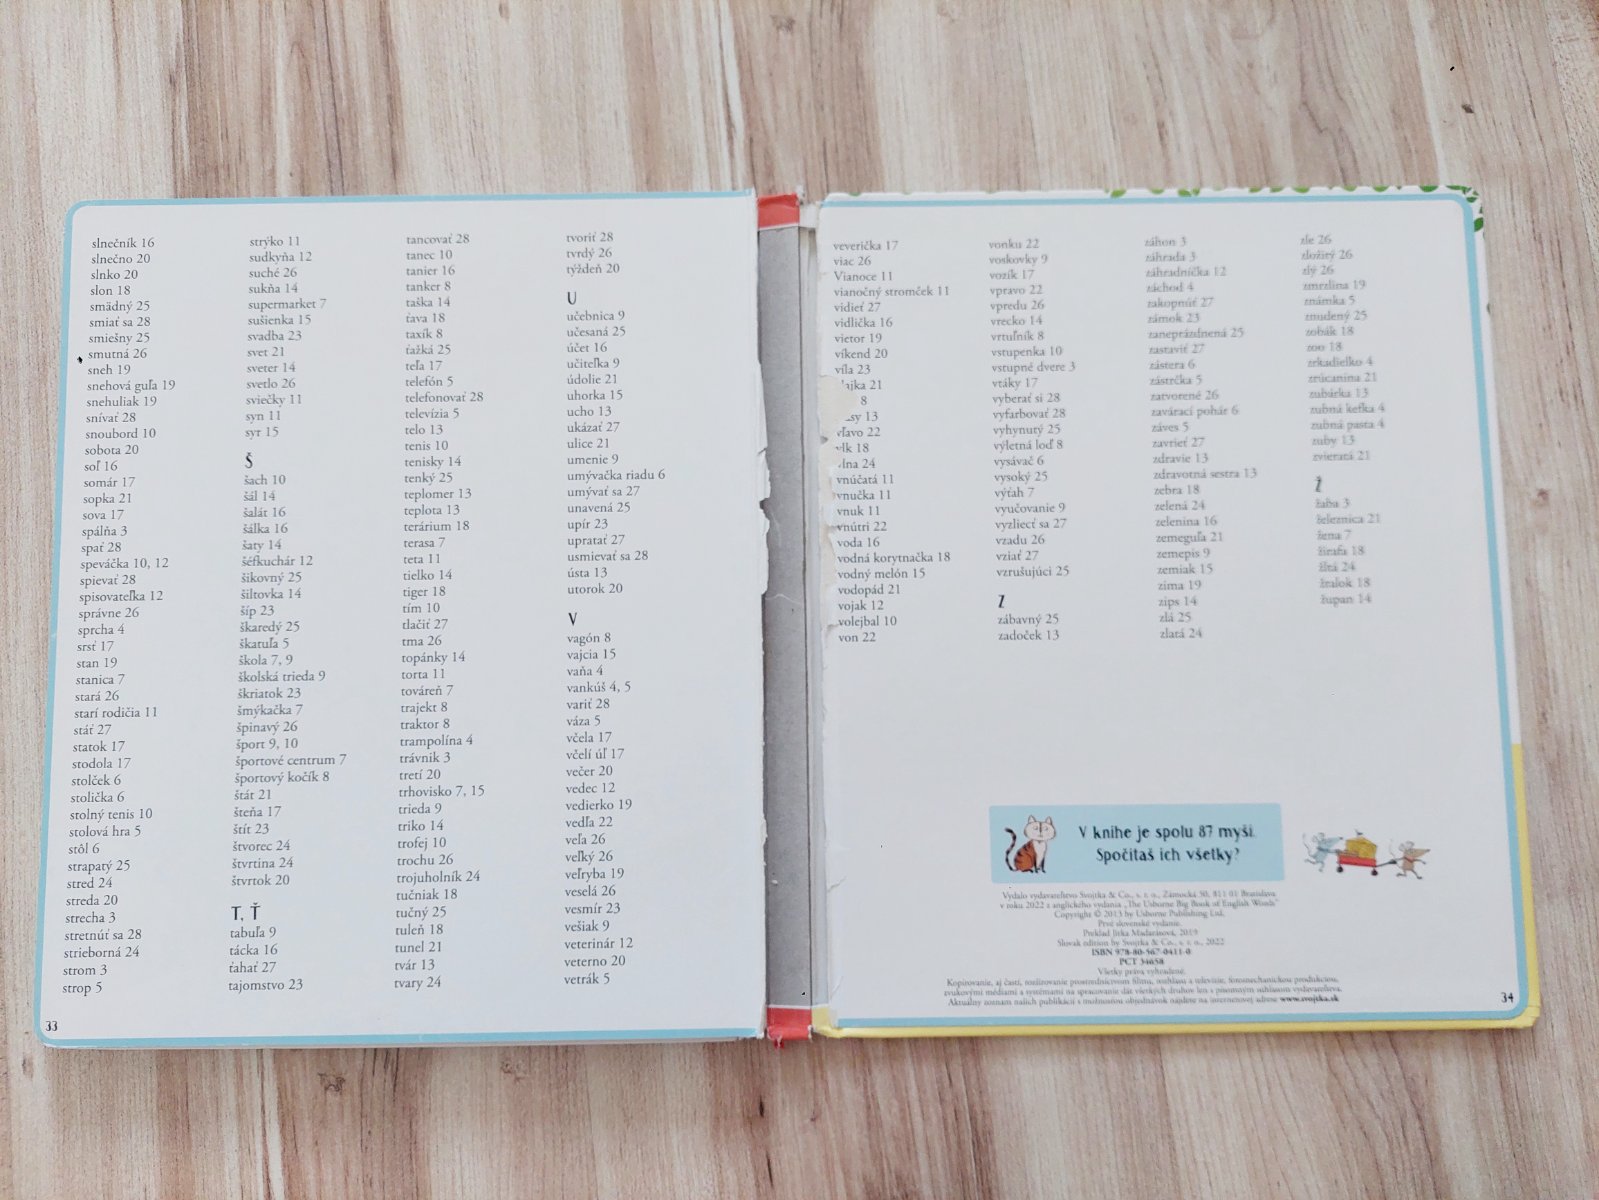 slnečník 16
slnečno 20
slnko 20
slon 18
smädný 25
smiať sa 28
smiešny 25
smutná 26
sneh 19
snehová guľa 19
snehuliak 19
snívať 28
snoubord 10
sobota 20
soľ 16
somár 17
sopka 21
sova 17
spálňa 3
spať 28
speváčka 10, 12
spievať 28
spisovateľka 12
správne 26
sprcha 4
srsť 17
stan 19
stanica 7
stará 26
starí rodičia 11
stáť 27
statok 17
stodola 17
stolček 6
stolička 6
stolný tenis 10
stolová hra 5
stôl 6
strapatý 25
stred 24
streda 20
strecha 3
stretnúť sa 28
strieborná 24
strom 3
strop 5
strýko 11
sudkyňa 12
suché 26
sukňa 14
supermarket 7
sušienka 15
svadba 23
svet 21
sveter 14
svetlo 26
sviečky 11
syn 11
syr 15
Š
šach 10
šál 14
šalát 16
šálka 16
šaty 14
šéfkuchár 12
šikovný 25
šiltovka 14
šíp 23
škaredý 25
škatuľa 5
škola 7, 9
školská trieda 9
škriatok 23
šmýkačka 7
špinavý 26
šport 9, 10
športové centrum 7
športový kočík 8
štát 21
šteňa 17
štít 23
štvorec 24
štvrtina 24
štvrtok 20
T, Ť
tabuľa 9
tácka 16
ťahať 27
tajomstvo 23
tancovať 28
tanec 10
tanier 16
tanker 8
taška 14
ťava 18
taxík 8
ťažká 25
teľa 17
telefón 5
telefonovať 28
televízia 5
telo 13
tenis 10
tenisky 14
tenký 25
teplomer 13
teplota 13
terárium 18
terasa 7
teta 11
tielko 14
tiger 18
tím 10
tlačiť 27
tma 26
topánky 14
torta 11
továreň 7
trajekt 8
traktor 8
trampolína 4
trávnik 3
tretí 20
trhovisko 7, 15
trieda 9
triko 14
trofej 10
trochu 26
trojuholník 24
tučniak 18
tučný 25
tuleň 18
tunel 21
tvár 13
tvary 24
tvoriť 28
tvrdý 26
týždeň 20
U
učebnica 9
učesaná 25
účet 16
učiteľka 9
údolie 21
uhorka 15
ucho 13
ukázať 27
ulice 21
umenie 9
umývačka riadu 6
umývať sa 27
unavená 25
upír 23
upratať 27
usmievať sa 28
ústa 13
utorok 20
V
vagón 8
vajcia 15
vaňa 4
vankúš 4, 5
variť 28
váza 5
včela 17
včelí úľ 17
večer 20
vedec 12
vedierko 19
vedľa 22
veľa 26
veľký 26
veľryba 19
veselá 26
vesmír 23
vešiak 9
veterinár 12
veterno 20
vetrák 5
33
veverička 17
viac 26
Vianoce 11
vianočný stromček 11
vidieť 27
vidlička 16
vietor 19
víkend 20
víla 23
lajka 21
8
sy 13
vľavo 22
vlk 18
vlna 24
vnúčatá 11
vnučka 11
vnuk 11
vnútri 22
voda 16
vodná korytnačka 18
vodný melón 15
vodopád 21
vojak 12
volejbal 10
von 22
vonku 22
voskovky 9
vozík 17
vpravo 22
vpredu 26
vrecko 14
vrtuľník 8
vstupenka 10
vstupné dvere 3
vtáky 17
vyberať si 28
vyfarbovať 28
vyhynutý 25
výletná loď 8
vysávač 6
vysoký 25
výťah 7
vyučovanie 9
vyzliecť sa 27
vzadu 26
vziať 27
vzrušujúci 25
Z
zábavný 25
zadoček 13
záhon 3
záhrada 3
záhradníčka 12
záchod 4
zakopnúť 27
zámok 23
zaneprázdnená 25
zastaviť 27
zástera 6
zástrčka 5
zatvorené 26
zavárací pohár 6
záves 5
zavrieť 27
zdravie 13
zdravotná sestra 13
zebra 18
zelená 24
zelenina 16
zemeguľa 21
zemepis 9
zemiak 15
zima 19
zips 14
zlá 25
zlatá 24
zle 26
zložitý 26
zlý 26
zmrzlina 19
známka 5
znudený 25
zobák 18
zoo 18
zrkadielko 4
zrúcanina 21
zubárka 13
zubná kefka 4
zubná pasta 4
zuby 13
zvieratá 21
Ž
žaba 3
železnica 21
žena 7
žirafa 18
žltá 24
žralok 18
župan 14
V knihe je spolu 87 myší.
Spočítaš ich všetky?
Vydalo vydavateľstvo Svojtka & Co., s. r. o., Zámocká 30, 811 01 Bratislava
v roku 2022 z anglického vydania „The Usborne Big Book of English Words"
Copyright © 2013 by Usborne Publishing Ltd.
Prvé slovenské vydanie.
Preklad Jitka Madarásová, 2019
Slovak edition by Svojtka & Co., s. r. o., 2022
ISBN 978-80-567-0411-0
PCT 34658
Všetky práva vyhradené.
Kopírovanie, aj častí, rozširovanie prostredníctvom filmu, rozhlasu a televízie, fotomechanickou produkciou,
zvukovými médiami a systémami na spracovanie dát všetkých druhov len s písomným súhlasom vydavateľstva.
Aktuálny zoznam našich publikácií s možnosťou objednávok nájdete na internetovej adrese www.svojtka.sk
34